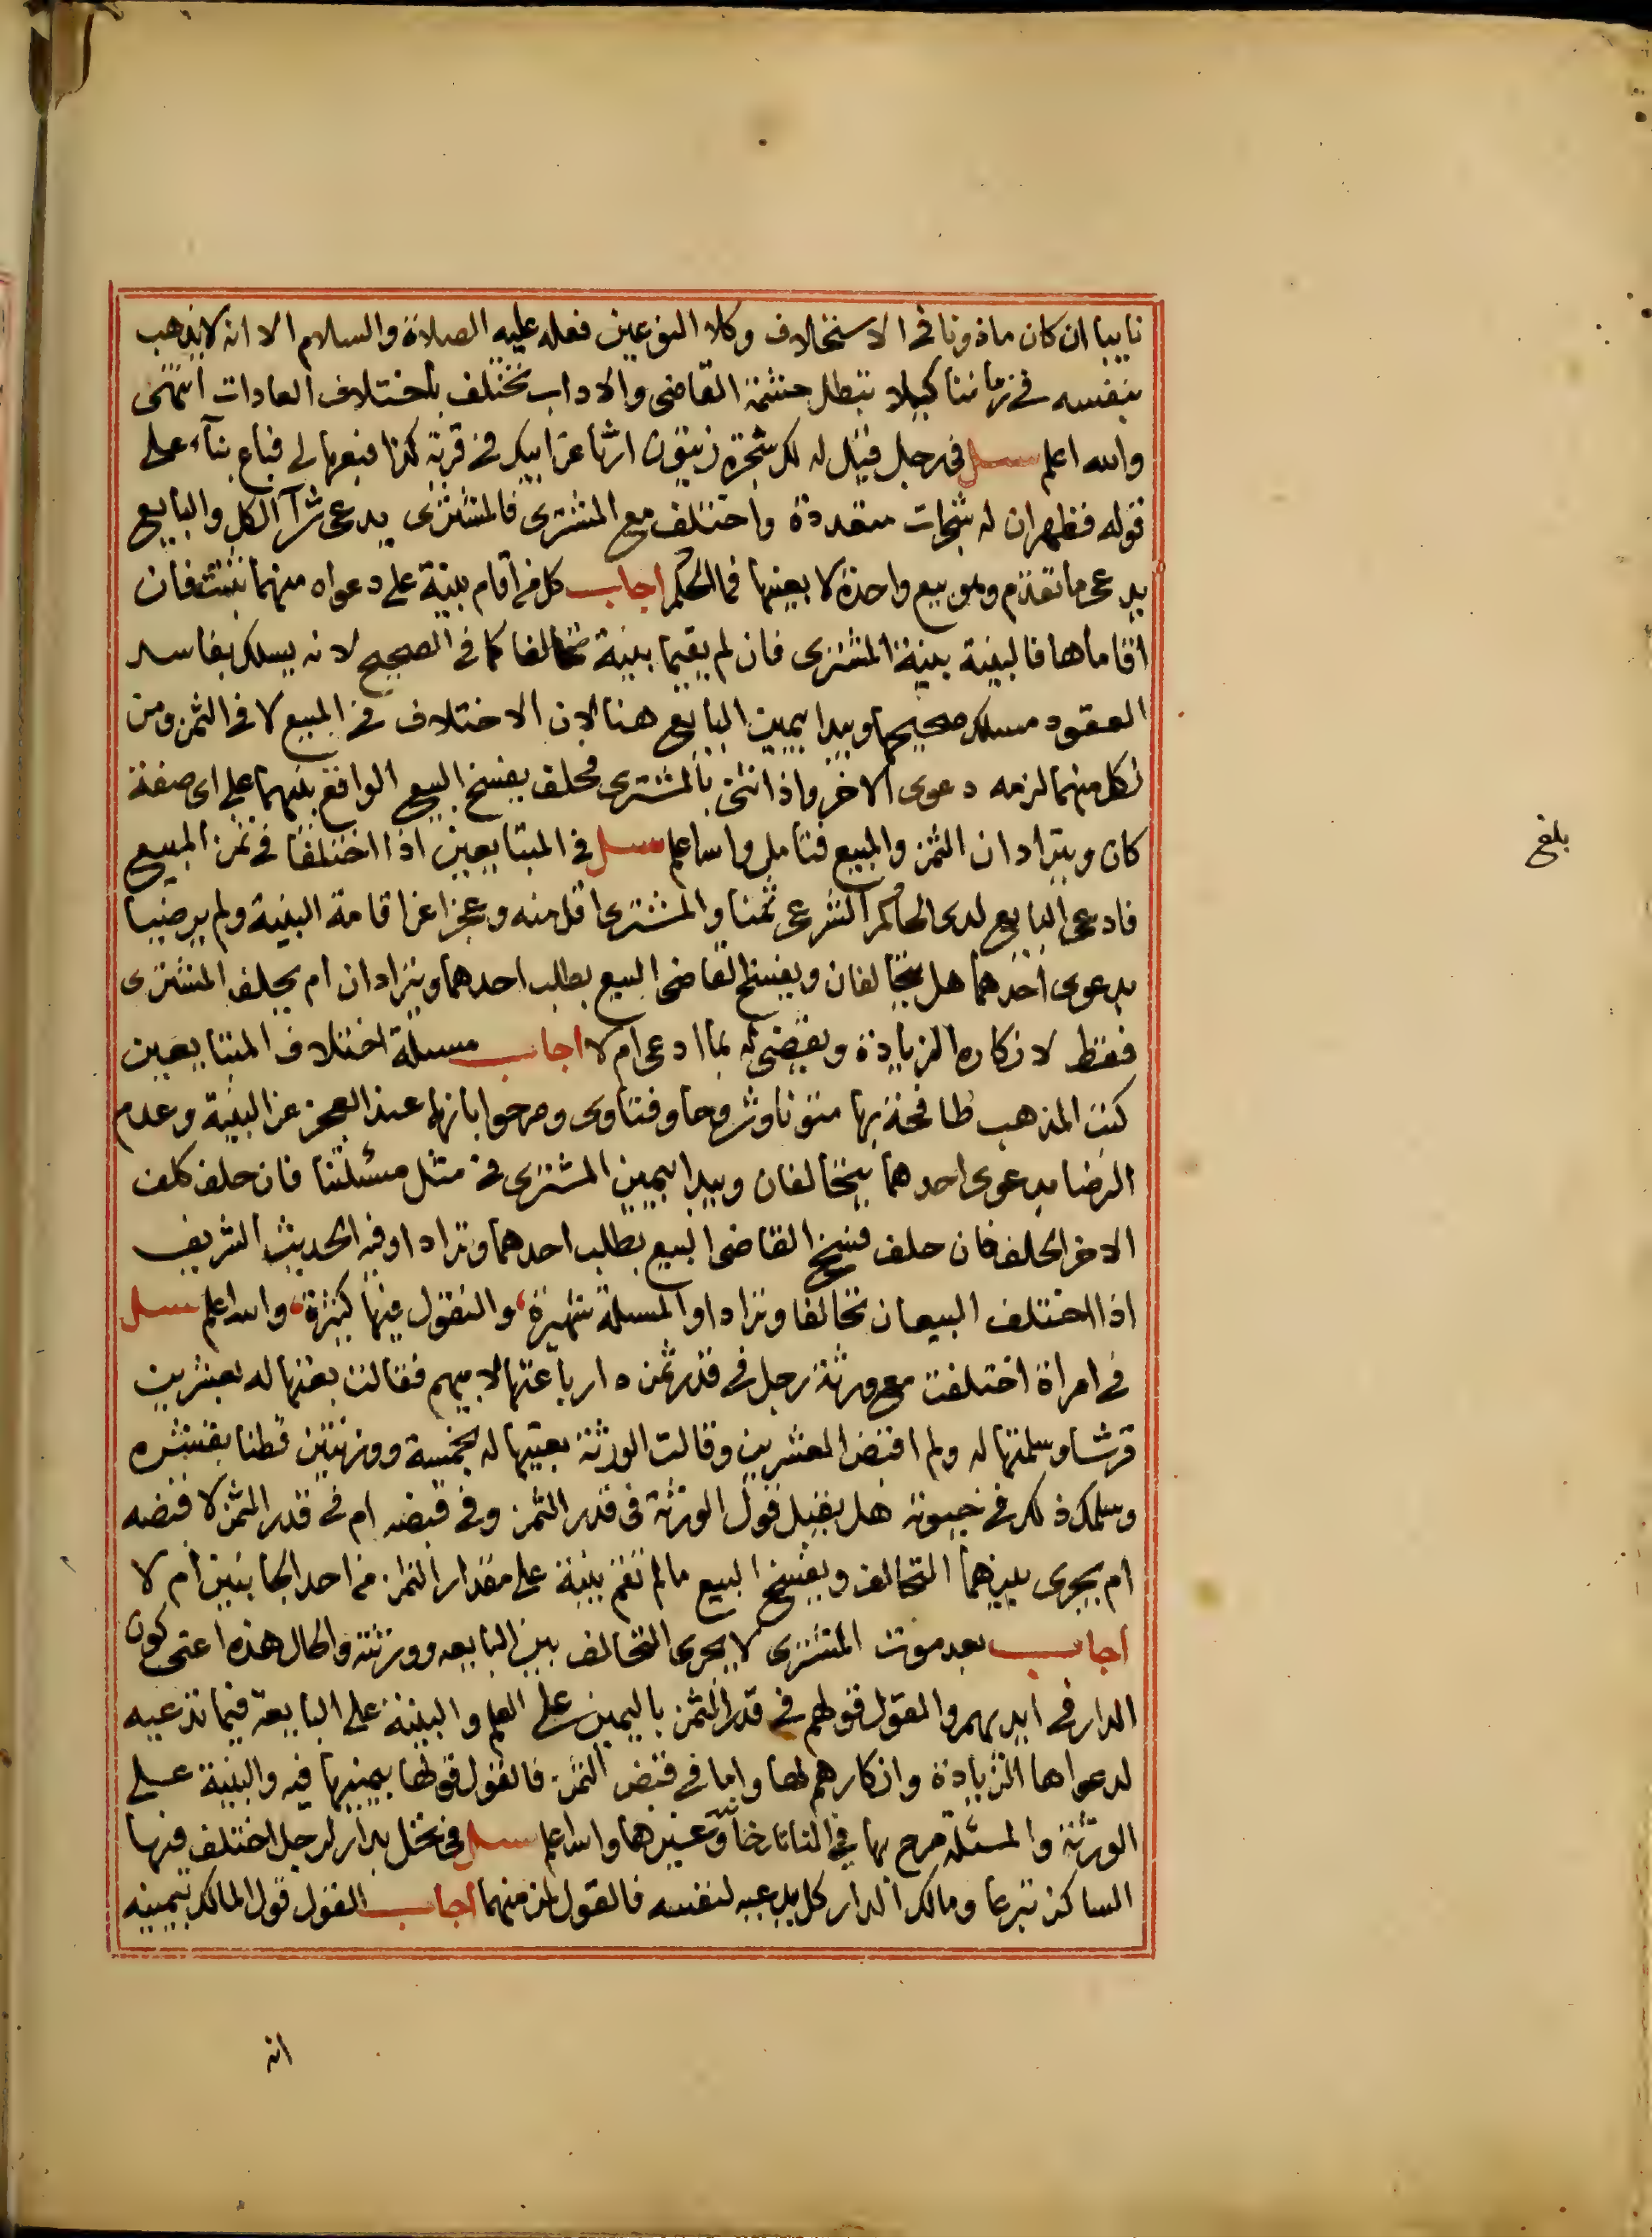 نايبا ان كان ماذونا فى الاستخلاف وكلا النوعين فعله عليه الصلاة والسلام الا انه لا يذهب
بنفسه فى زماننا كيلا تبطل حشمة القاضى والاداب تختلف باختلاف العادات انتهى
والله اعلم سئل فى رجل قيل له لك شجرة زيتون ارثا عن ابيك فى قرية كذا فبعها لى فباع بناء على
قوله فظهر ان له شجرات متعددة واختلف مع المشترى فالمشترى يدعى شرآ الكل والبايع
يدعى ما تقدم وهو بيع واحدة لا بعينها فما الحكم اجاب كل من اقام بينة على دعواه منهما تثبت فان
اقاماها فالبينة بينة المشترى فان لم يقيما بينة تحالفا كما فى الصحيح لانه يسلك بفاسد
العقود مسلك صحيحها ويبدا بيمين البايع هنا لان الاختلاف فى المبيع لا فى الثمن ومن
نكل منهما لزمه دعوى الاخر واذا ثنى بالمشترى فحلف يفسخ البيع الواقع بينهما على اى صفة
كان ويترادان الثمن والمبيع فتامل والله اعلم سئل فى المتبايعين اذا اختلفا فى ثمن المبيع
فادعى البايع لدى الحاكم الشرعى ثمنا والمشترى اقل منه وعجزا عن اقامة البينة ولم يرضيا
بدعوى احدهما هل يتحالفان ويفسخ القاضى البيع بطلب احدهما ويترادان ام يحلف المشترى
فقط لانكاره الزيادة ويقضى له بما ادعى ام لا اجاب مسئلة اختلاف المتبايعين
كتب المذهب طافحة بها متونا وشروحا وفتاوى وصرحوا بانه عند العجز عن البينة وعدم
الرضا بدعوى احدهما يتحالفان ويبدا بيمين المشترى فى مثل مسئلتنا فان حلف كلف
الاخر الحلف فان حلف فسخ القاضى البيع بطلب احدهما وترادا وفيه الحديث الشريف
اذا اختلف البيعان تحالفا وترادا والمسئلة شهيرة والنقول فيها كثيرة والله اعلم سئل
فى امراة اختلفت مع ورثة رجل فى قدر ثمن دار باعتها لابيهم فقالت بعتها له بعشرين
قرشا وسلمتها له ولم اقبض العشرين وقالت الورثة بعتيها له بخمسة ووزنتين قطنا بقشره
وسلمك ذلك فى حيوته هل يقبل قول الورثة فى قدر الثمن وفى قبضه ام فى قدر الثمن لا قبضه
ام يجرى بينهما التحالف ويفسخ البيع ما لم تقم بينة على مقدار الثمن من احد الجانبين ام لا
اجاب بعد موت المشترى لا يجرى التحالف بين البايعه وورثته والحال هذه اعنى كون
الدار فى ايديهم والقول قولهم فى قدر الثمن باليمين على العلم والبينة على البايعة فيما تدعيه
لدعواها الزيادة وانكارهم لها واما فى قبض الثمن فالقول قولها بيمينها فيه والبينة على
الورثة والمسئلة صرح بها فى التاتارخانية وغيرها والله اعلم سئل فى نخل بدار لرجل اختلف فيها
الساكن تبرعا ومالك الدار كل يدعيه لنفسه فالقول لمن منهما اجاب القول قول المالك بيمينه
بلغ
انه